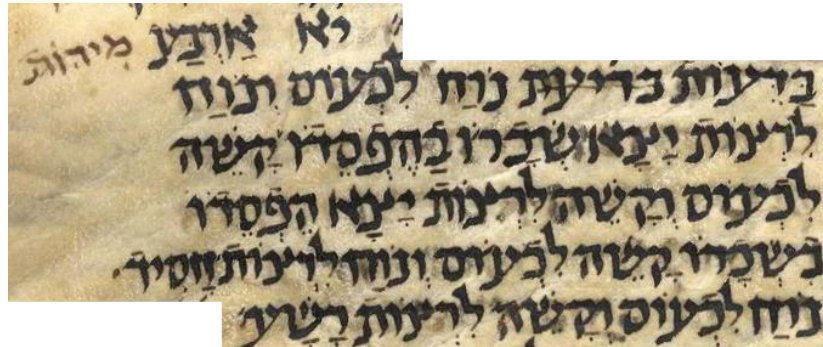 יא אַרְבַּע מִידוֹת
בַדֵּיעוֹת בדיעת נוֹחַ לִכְעוֹס וְנוֹחַ
לִרְצוֹת יָצָא שְׂכָרוֹ בַהֶפְסֵדוֹ קָשֶׁה
לִכְעוֹס וְקָשֶׁה לִרְצוֹת יָצָא הֶפְסֵדוֹ
בִשְׂכָרוֹ קָשֶׁה לִכְעוֹס וְנוֹחַ לִרְצוֹת חָסִיד
נוֹחַ לִכְעוֹס וְקָשֶׁה לִרְצוֹת רָשָׁע